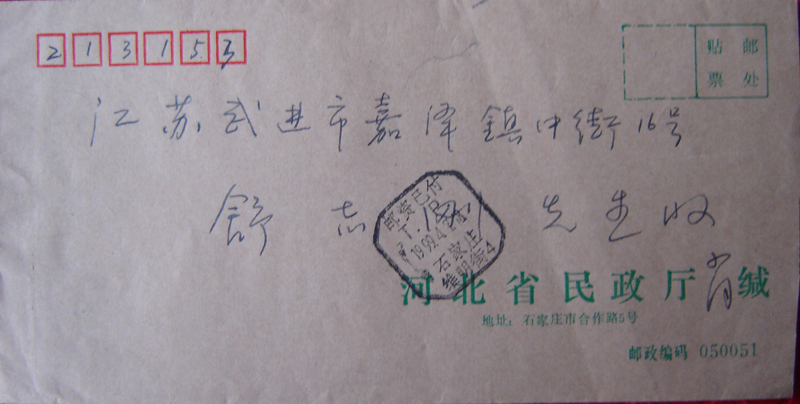 213153
贴 邮
票 处
江苏武进市嘉泽镇中街16号
舒志 先生收
邮资已付
1999.4
石家庄
维明街4
河北省民政厅 肖 缄
地址：石家庄市合作路5号
邮政编码 050051